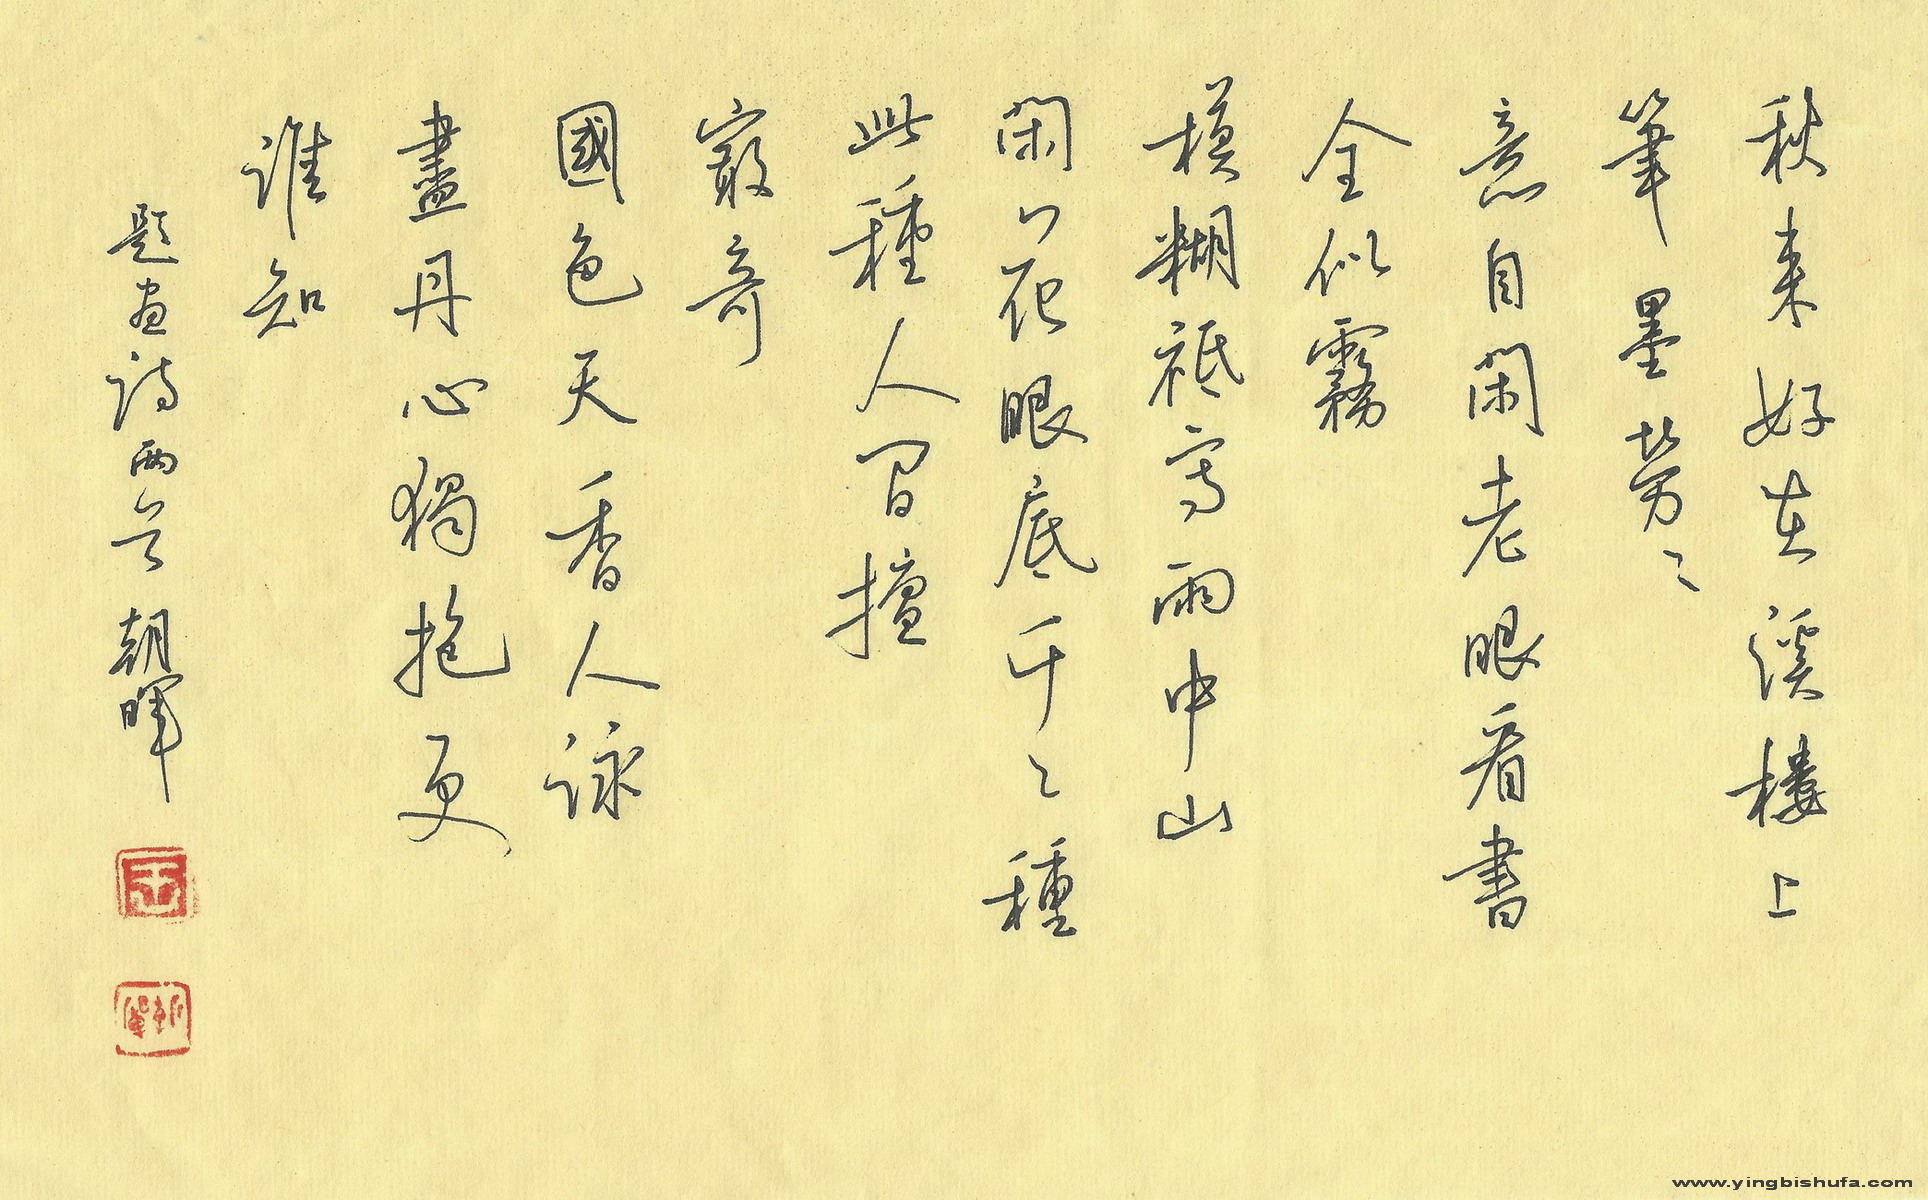 秋来好在溪樓上
筆墨勞〻
意自閑老眼看書
全似霧
模糊祗寫雨中山
閑〻花眼底千〻種
此種人间擅
最奇
國色天香人詠
盡丹心獨抱更
誰知
題畫詩兩首 朝暉
www.yingbishufa.com